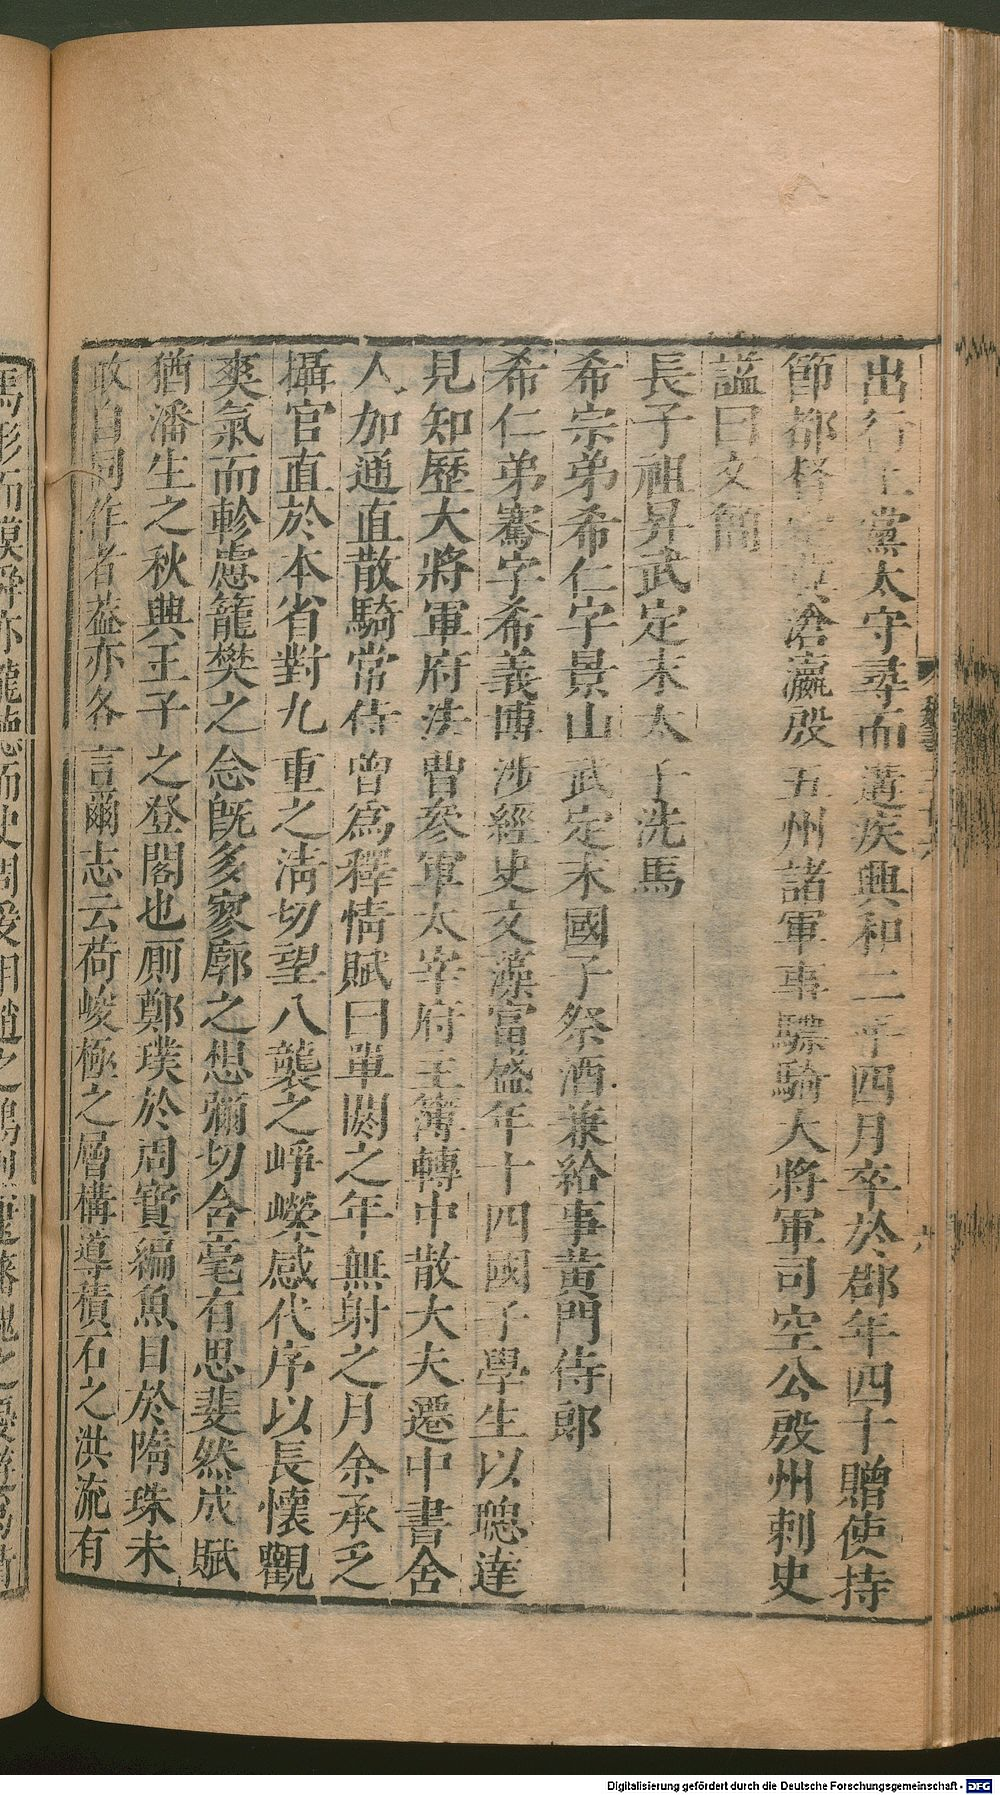 出行上黨太守尋而遘疾興和二年四月卒於郡年四十贈使持
節都督滄瀛殷五州諸軍事驃騎大將軍司空公殷州刺史
謚曰文簡
長子祖昇武定末太子洗馬
希宗弟希仁字景山武定末國子祭酒兼給事黃門侍郎
希仁弟騫字希義博涉經史文藻富盛年十四國子學生以聰達
見知歷大將軍府法曹參軍太宰府主簿轉中散大夫遷中書舍
人加通直散騎常侍曾爲釋情賦曰單閼之年無射之月余承乏
攝官直於本省對九重之清切望八襲之崢嶸感代序以長懷觀
爽氣而軫慮籠樊之念既多寥廓之想彌切含毫有思斐然成賦
猶潘生之秋興王子之登閣也厠鄭璞於周寶編魚目於隋珠未
敢自同作者蓋亦各言爾志云荷峻極之層構導積石之洪流有
Digitalisierung gefördert durch die Deutsche Forschungsgemeinschaft - DFG